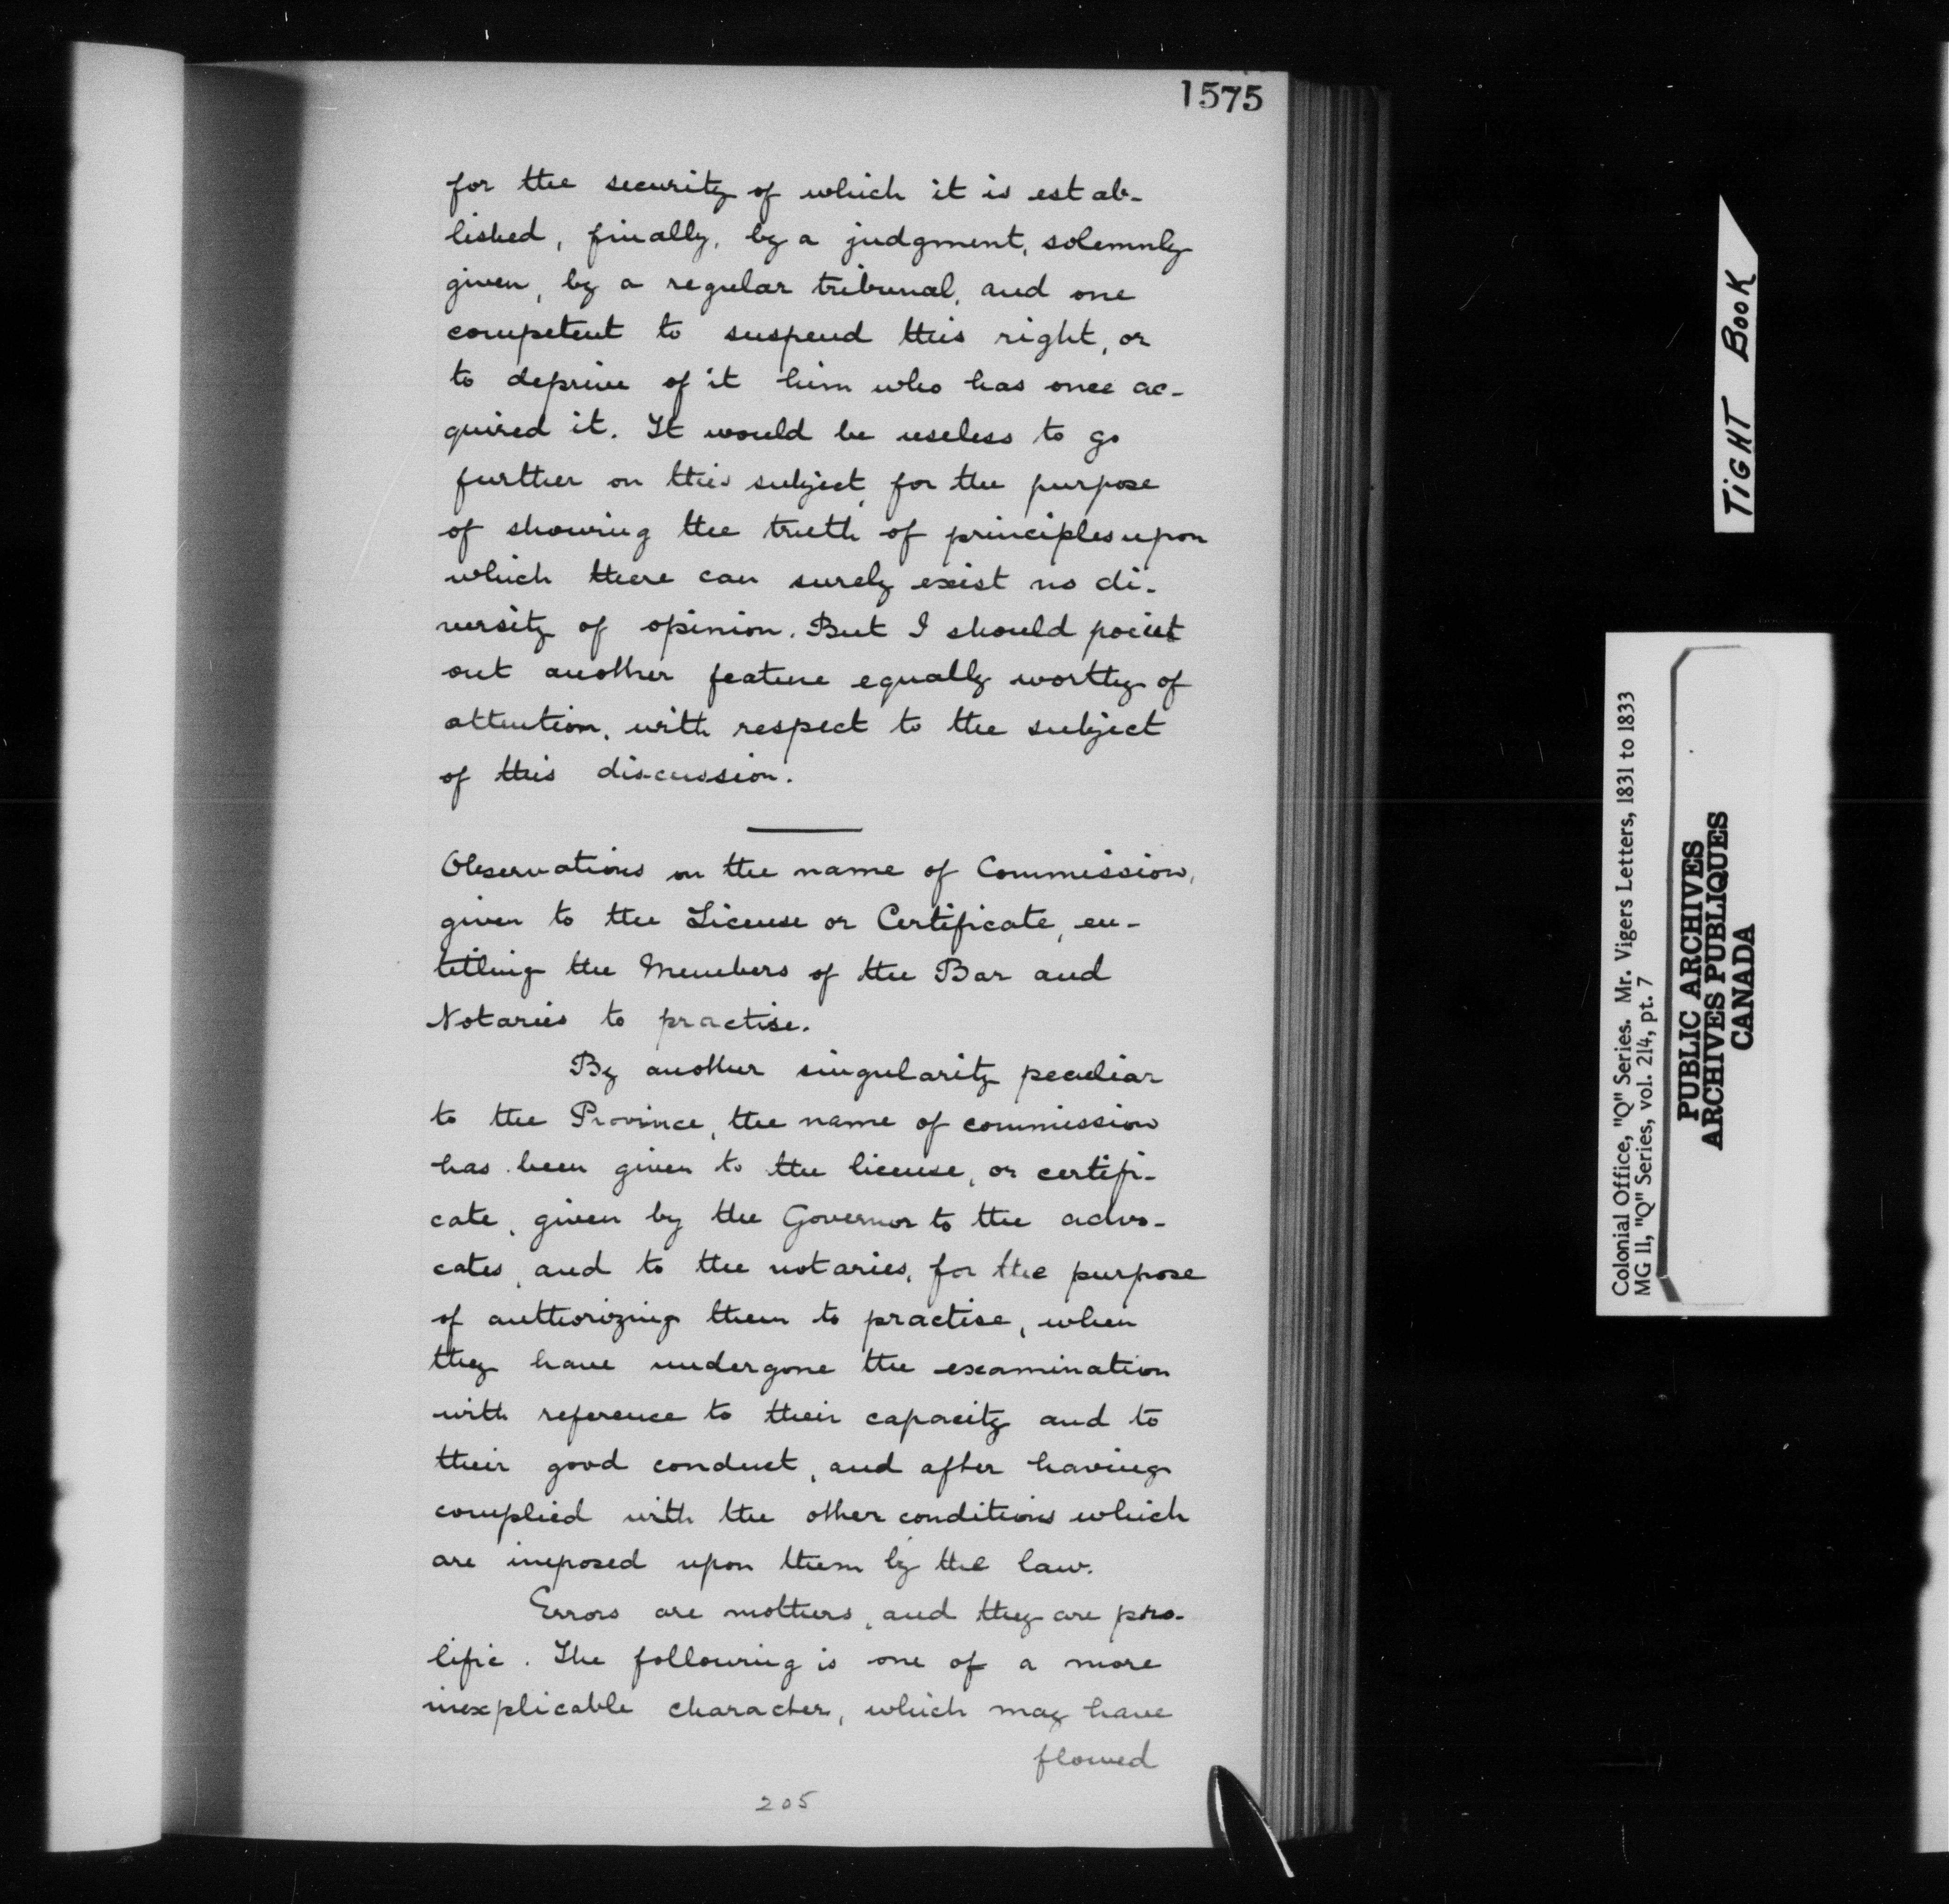 1575
for the security of which it is estab-
lished, finally, by a judgment, solemnly
given, by a regular tribunal, and one
competent to suspend this right, or
to deprive of it him who has once ac-
quired it. It would be useless to go
further on this subject, for the purpose
of showing the truth of principles upon
which there can surely exist no di-
versity of opinion. But I should point
out another feature equally worthy of
attention, with respect to the subject
of this discussion.
Observations on the name of Commission,
given to the License or Certificate, en-
titling the Members of the Bar and
Notaries to practise.
By another singularity peculiar
to the Province, the name of commission
has been given to the license, or certifi-
cate, given by the Governor to the advo-
cates, and to the notaries, for the purpose
of authorizing them to practise, when
they have undergone the examination
with reference to their capacity and to
their good conduct, and after having
complied with the other conditions which
are imposed upon them by the law.
Errors are mothers, and they are pro-
lific. The following is one of a more
inexplicable character, which may have
flowed
205
TIGHT BOOK
Colonial Office, "Q" Series. Mr. Vigers Letters, 1831 to 1833
MG 11, "Q" Series, vol. 214, pt. 7
PUBLIC ARCHIVES
ARCHIVES PUBLIQUES
CANADA